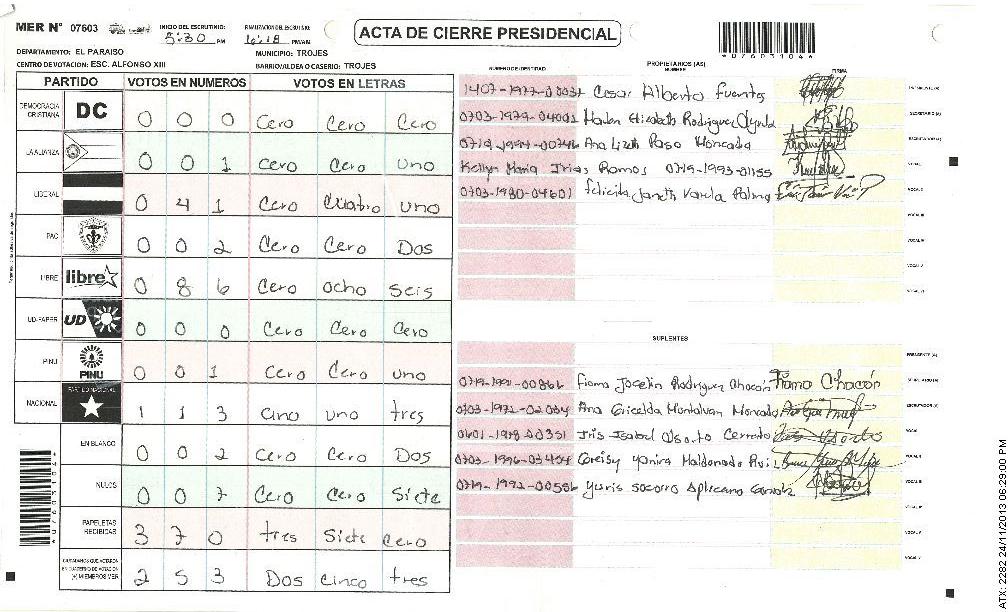 MER N° 07603
INICIO DEL ESCRUTINIO: 5:30 PM
FINALIZACION DEL ESCRUTINIO: 6:18 PM/AM
ACTA DE CIERRE PRESIDENCIAL
*07603104*
DEPARTAMENTO: EL PARAISO
MUNICIPIO: TROJES
CENTRO DE VOTACION: ESC. ALFONSO XIII
BARRIO/ALDEA O CASERIO: TROJES
PARTIDO VOTOS EN NUMEROS VOTOS EN LETRAS
DEMOCRACIA CRISTIANA DC 0 0 0 Cero Cero Cero
LA ALIANZA 0 0 1 Cero Cero Uno
LIBERAL 0 4 1 Cero Cuatro uno
PAC 0 0 2 Cero Cero Dos
LIBRE libre 0 8 6 Cero ocho seis
UD-FAPER UD 0 0 0 Cero Cero Cero
PINU PINU 0 0 1 Cero Cero uno
NACIONAL PARTIDO NACIONAL 1 1 3 Cinco uno tres
EN BLANCO 0 0 2 Cero Cero Dos
NULOS 0 0 7 Cero Cero Siete
PAPELETAS RECIBIDAS 3 7 0 tres Siete Cero
CIUDADANOS QUE VOTARON EN CUADERNO DE VOTACION (+) MIEMBROS MER 2 5 3 Dos cinco tres
NUMERO DE IDENTIDAD PROPIETARIOS (AS) NOMBRE FIRMA
Cesar Alberto Fuentes PRESIDENTE (A)
0703-1979-04001 Elizabeth Rodriguez SECRETARIO (A)
Ana Lizeth ESCRUTADOR (A)
Kellyn Maria Irias Ramos 0719-1993-01155 VOCAL I
0703-1980-04601 Felicita Janeth Varela Palma VOCAL II
VOCAL III
VOCAL IV
VOCAL V
VOCAL VI
SUPLENTES
PRESIDENTE (A)
Fioma Jocelin Rodriguez Chacón Chacón SECRETARIO (A)
Ana Griselda Montalvan Moncada ESCRUTADOR (A)
0601-1978-00351 Iris Isabel VOCAL I
Yanira Maldonado VOCAL II
Yuris Socorro Aplicano VOCAL III
VOCAL IV
VOCAL V
VOCAL VI
*07603104*
ATX: 2282 24/11/2013 06:29:00 PM